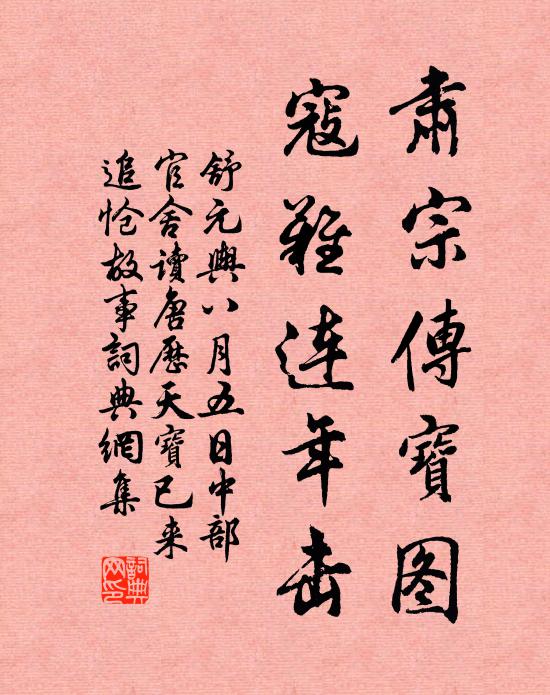 肃宗傳寶图
寇難连年击
舒元輿八月五日中部
官舍读唐歷天寶已来
追怆故事詞典網集
詞典网印